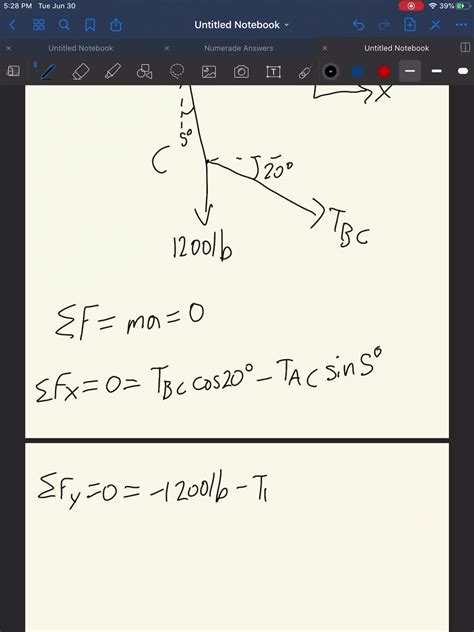 5:28 PM Tue Jun 30
39%
Untitled Notebook
Untitled Notebook
Numerade Answers
Untitled Notebook
X
5°
C
20°
T_BC
1200lb
ΣF = ma = 0
ΣFx = 0 = T_BC cos20° - T_AC sin5°
ΣFy = 0 = -1200lb - T